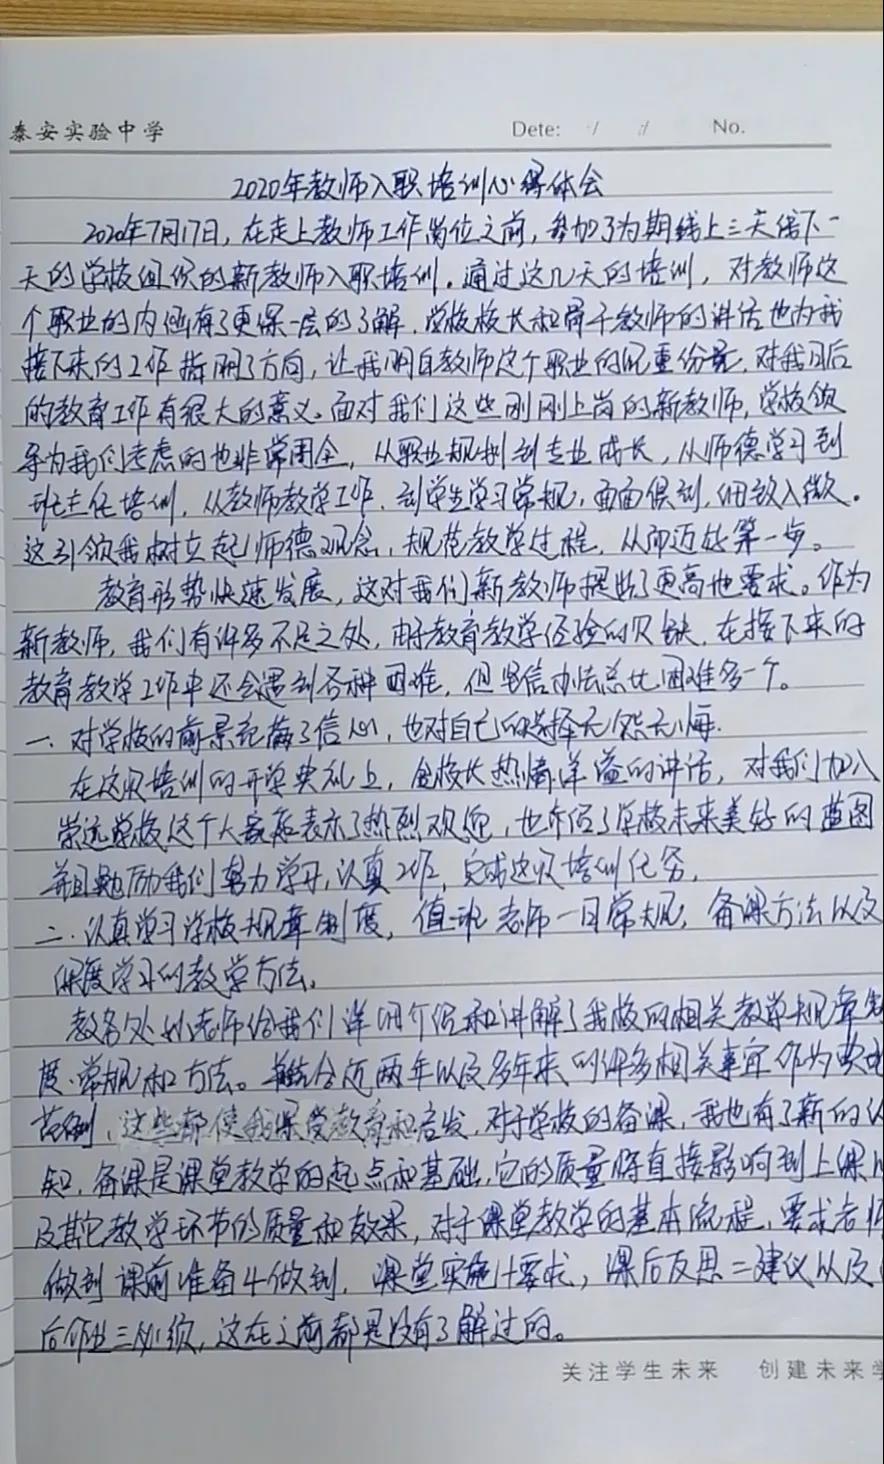 泰安实验中学 Dete: / / No.
2020年教师入职培训心得体会
2020年7月17日，在走上教师工作岗位之前，参加了为期线上三天线下一
天的学校组织的新教师入职培训。通过这几天的培训，对教师这
个职业的内涵有了更深一层的了解，学校校长和骨干教师的讲话也为我
接下来的工作指明了方向，让我明白教师这个职业的沉重份量，对我日后
的教育工作有很大的意义。面对我们这些刚刚上岗的新教师，学校领
导为我们考虑的也非常周全，从职业规划到专业成长，从师德学习到
班主任培训，从教师教学工作，到学生学习常规，面面俱到，细致入微。
这引领我树立起师德观念，规范教学过程，从而迈好第一步。
教育形势快速发展，这对我们新教师提出了更高地要求。作为
新教师，我们有许多不足之处，由于教育教学经验的欠缺，在接下来的
教育教学工作中还会遇到各种困难，但坚信办法总比困难多一个。
一、对学校的前景充满了信心，也对自己的选择无怨无悔.
在这次培训的开学典礼上，校长热情洋溢的讲话，对我们加入
学校这个大家庭表示了热烈欢迎，也介绍了学校未来美好的蓝图
并且勉励我们努力学习，认真工作，完成这次培训任务，
二、认真学习学校规章制度，值班老师一日常规，备课方法以及
深度学习的教学方法。
教务处老师给我们详细介绍和讲解了我校的相关教学规章制
度、常规和方法。并结合近两年以及多年来的许多相关事宜作为典型
范例，这些都使我深受教育和启发，对于学校的备课，我也有了新的认
知，备课是课堂教学的起点和基础，它的质量将直接影响到上课以
及其它教学环节的质量和效果，对于课堂教学的基本流程，要求老师
做到课前准备4做到，课堂实施十要求，课后反思二建议以及
后作业三必须，这在之前都是没有了解过的。
关注学生未来 创建未来学